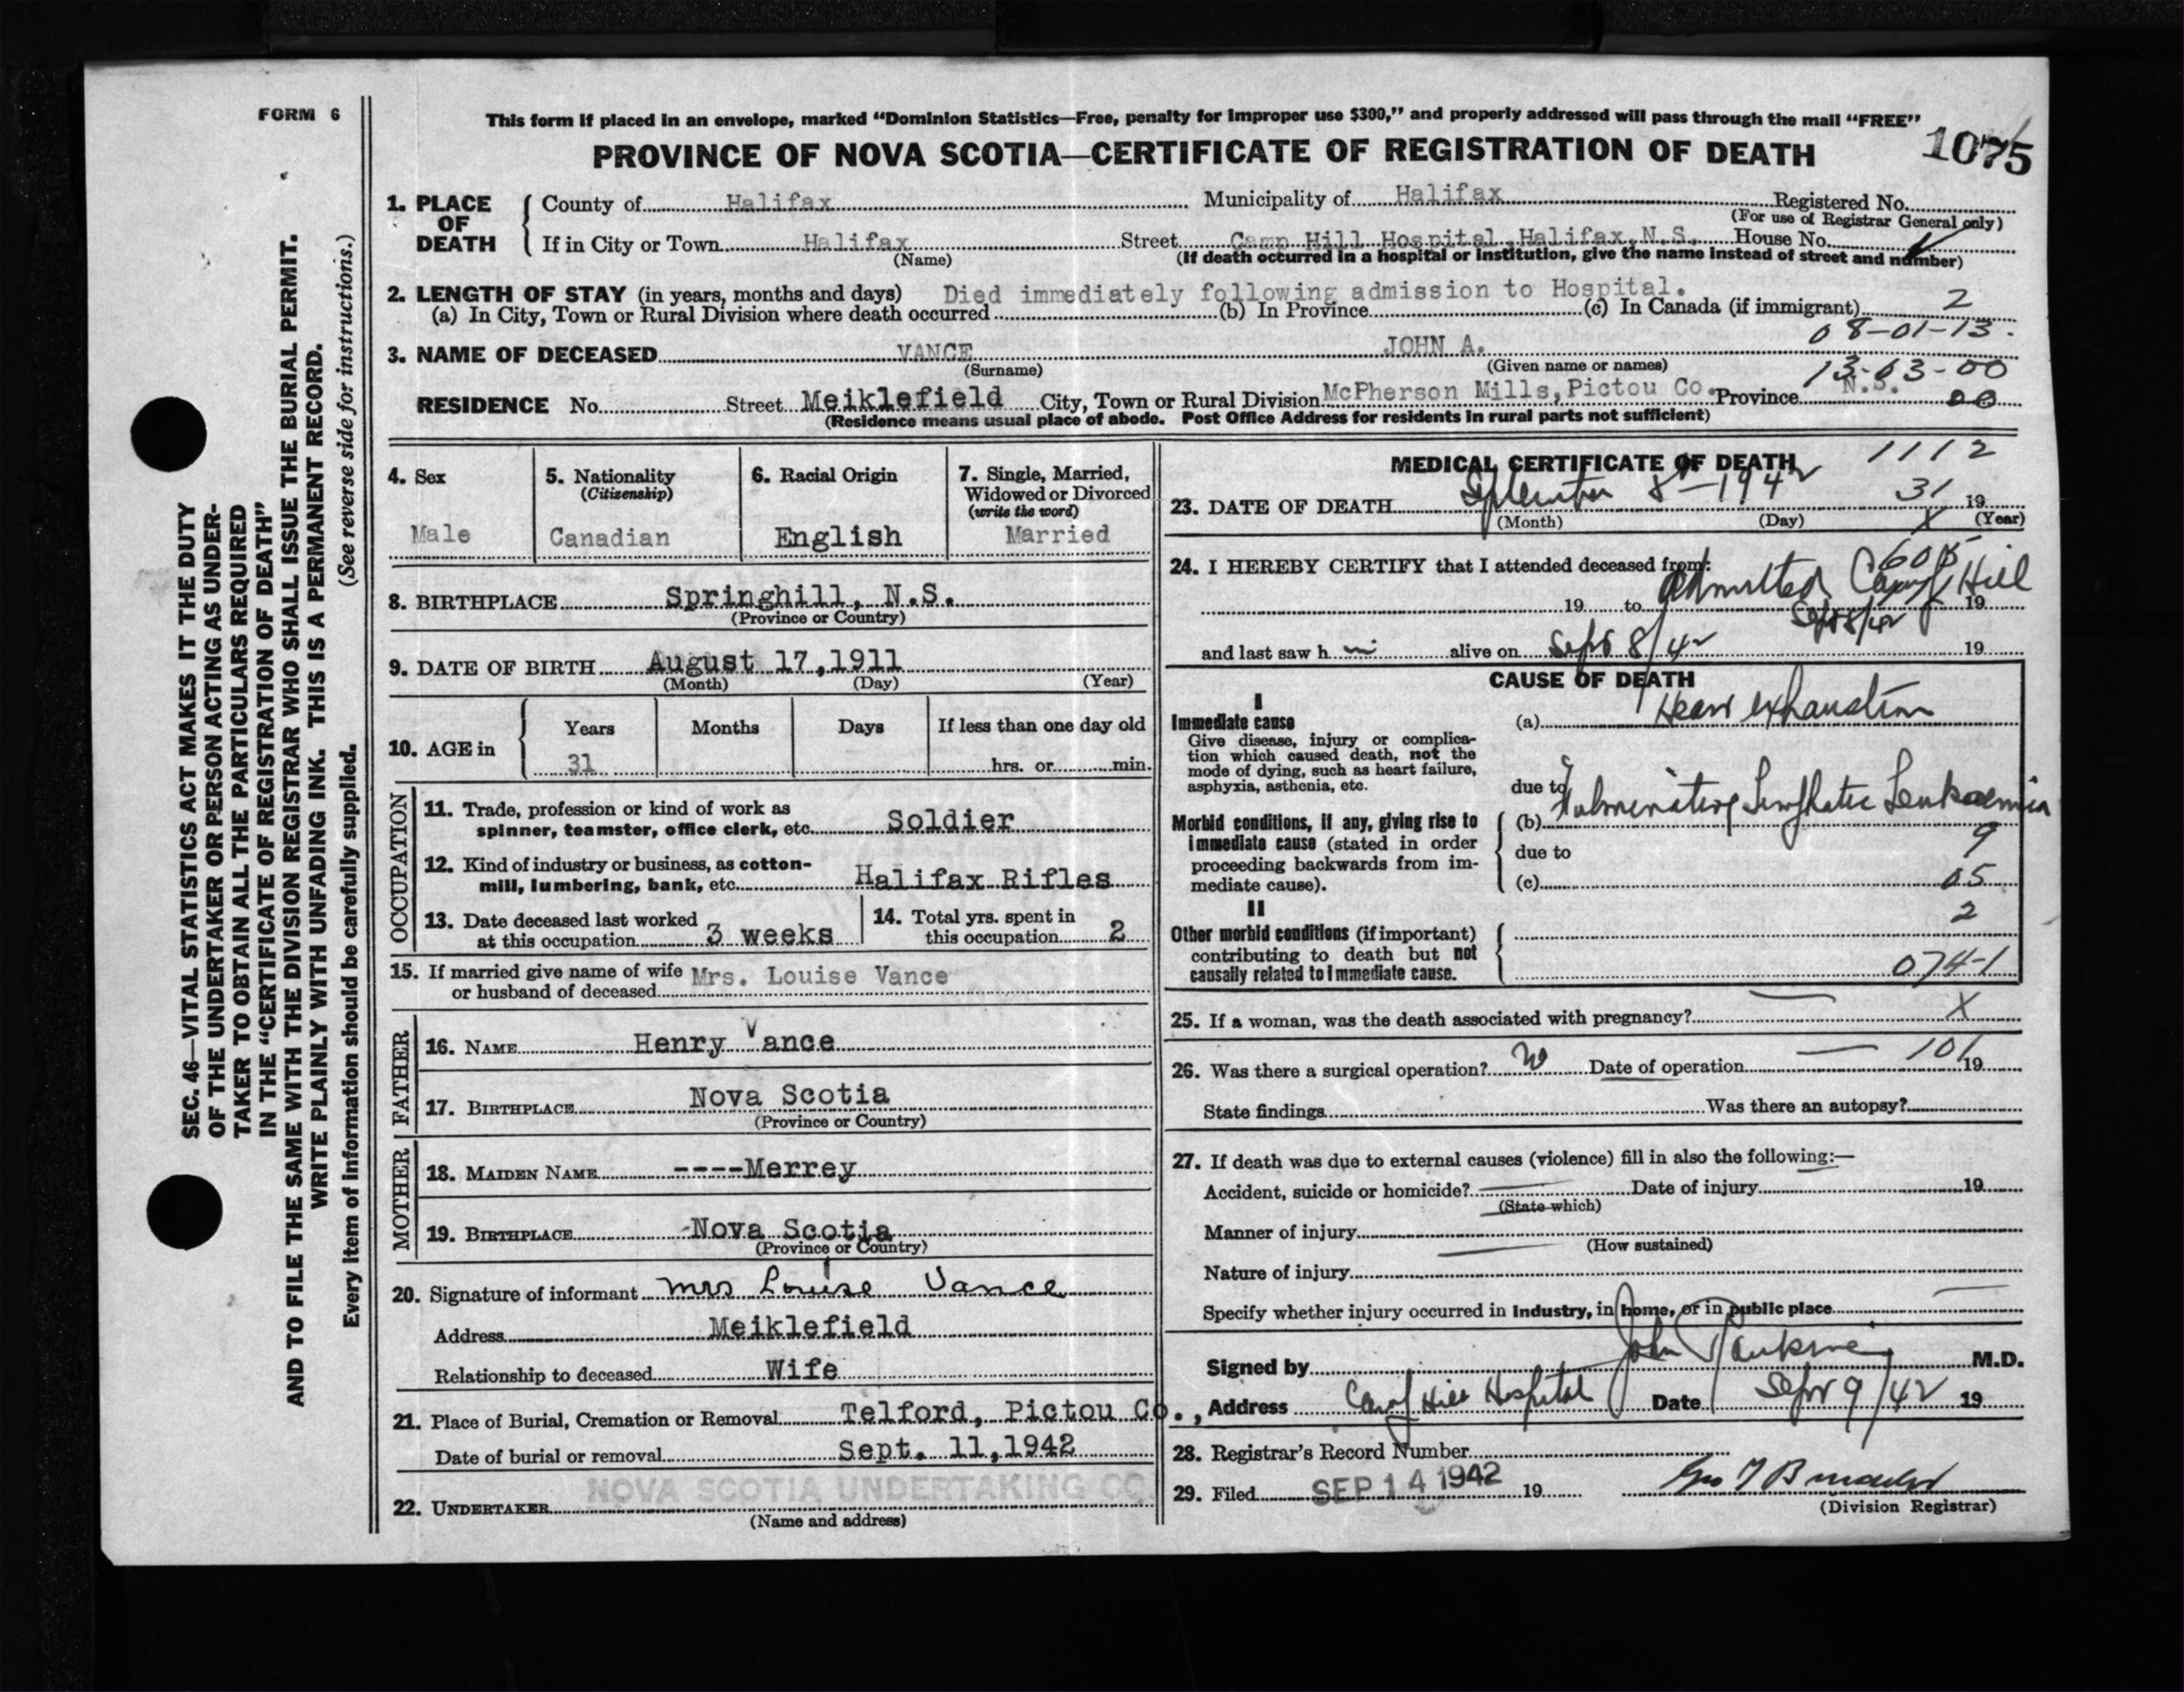 FORM 6
This form if placed in an envelope, marked “Dominion Statistics—Free, penalty for improper use $300,” and properly addressed will pass through the mail “FREE”
PROVINCE OF NOVA SCOTIA—CERTIFICATE OF REGISTRATION OF DEATH
1075
SEC. 46—VITAL STATISTICS ACT MAKES IT THE DUTY
OF THE UNDERTAKER OR PERSON ACTING AS UNDER-
TAKER TO OBTAIN ALL THE PARTICULARS REQUIRED
IN THE “CERTIFICATE OF REGISTRATION OF DEATH”
AND TO FILE THE SAME WITH THE DIVISION REGISTRAR WHO SHALL ISSUE THE BURIAL PERMIT.
WRITE PLAINLY WITH UNFADING INK. THIS IS A PERMANENT RECORD.
Every item of information should be carefully supplied. (See reverse side for instructions.)
1. PLACE OF DEATH
County of Halifax Municipality of Halifax Registered No.
(For use of Registrar General only)
If in City or Town Halifax Street Camp Hill Hospital, Halifax, N.S. House No.
(Name) (If death occurred in a hospital or institution, give the name instead of street and number)
2. LENGTH OF STAY (in years, months and days) Died immediately following admission to Hospital.
(a) In City, Town or Rural Division where death occurred (b) In Province (c) In Canada (if immigrant) 2
08-01-13.
3. NAME OF DECEASED VANCE JOHN A.
(Surname) (Given name or names)
13-03-00
RESIDENCE No. Street Meiklefield City, Town or Rural Division McPherson Mills, Pictou Co. Province N.S. 00
(Residence means usual place of abode. Post Office Address for residents in rural parts not sufficient)
4. Sex
Male
5. Nationality
(Citizenship)
Canadian
6. Racial Origin
English
7. Single, Married,
Widowed or Divorced
(write the word)
Married
8. BIRTHPLACE Springhill, N.S.
(Province or Country)
9. DATE OF BIRTH August 17, 1911
(Month) (Day) (Year)
10. AGE in Years Months Days If less than one day old
31 hrs. or min.
OCCUPATION
11. Trade, profession or kind of work as
spinner, teamster, office clerk, etc. Soldier
12. Kind of industry or business, as cotton-
mill, lumbering, bank, etc. Halifax Rifles
13. Date deceased last worked
at this occupation 3 weeks
14. Total yrs. spent in
this occupation 2
15. If married give name of wife Mrs. Louise Vance
or husband of deceased
FATHER
16. NAME Henry Vance
17. BIRTHPLACE Nova Scotia
(Province or Country)
MOTHER
18. MAIDEN NAME ----Merrey
19. BIRTHPLACE -Nova Scotia
(Province or Country)
20. Signature of informant Mrs Louise Vance
Address Meiklefield
Relationship to deceased Wife
21. Place of Burial, Cremation or Removal Telford, Pictou Co.,
Date of burial or removal Sept. 11, 1942
22. UNDERTAKER NOVA SCOTIA UNDERTAKING CO.
(Name and address)
MEDICAL CERTIFICATE OF DEATH
1112
23. DATE OF DEATH September 8-1942 31 19
(Month) (Day) X (Year)
24. I HEREBY CERTIFY that I attended deceased from: 605
19 to Admitted Camp Hill 19
Sept 8/42
and last saw h im alive on Sept 8/42 19
CAUSE OF DEATH
I
Immediate cause
Give disease, injury or complica-
tion which caused death, not the
mode of dying, such as heart failure,
asphyxia, asthenia, etc.
(a) Heart exhaustion
due to
Morbid conditions, if any, giving rise to
immediate cause (stated in order
proceeding backwards from im-
mediate cause).
(b) Fulminating Lymphatic Leukaemia
due to 9
(c) 05
II 2
Other morbid conditions (if important)
contributing to death but not
causally related to immediate cause.
074-1
25. If a woman, was the death associated with pregnancy? — X
26. Was there a surgical operation? no Date of operation — 101 19
State findings Was there an autopsy?
27. If death was due to external causes (violence) fill in also the following:—
Accident, suicide or homicide? Date of injury 19
(State which)
Manner of injury
(How sustained)
Nature of injury
Specify whether injury occurred in industry, in home, or in public place
Signed by John M.D.
Address Camp Hill Hospital Date Sept 9/42 19
28. Registrar's Record Number
29. Filed SEP 14 1942 19
(Division Registrar)